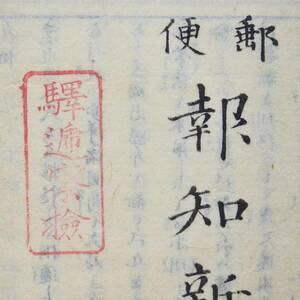 郵便
報知新
驛遞
檢